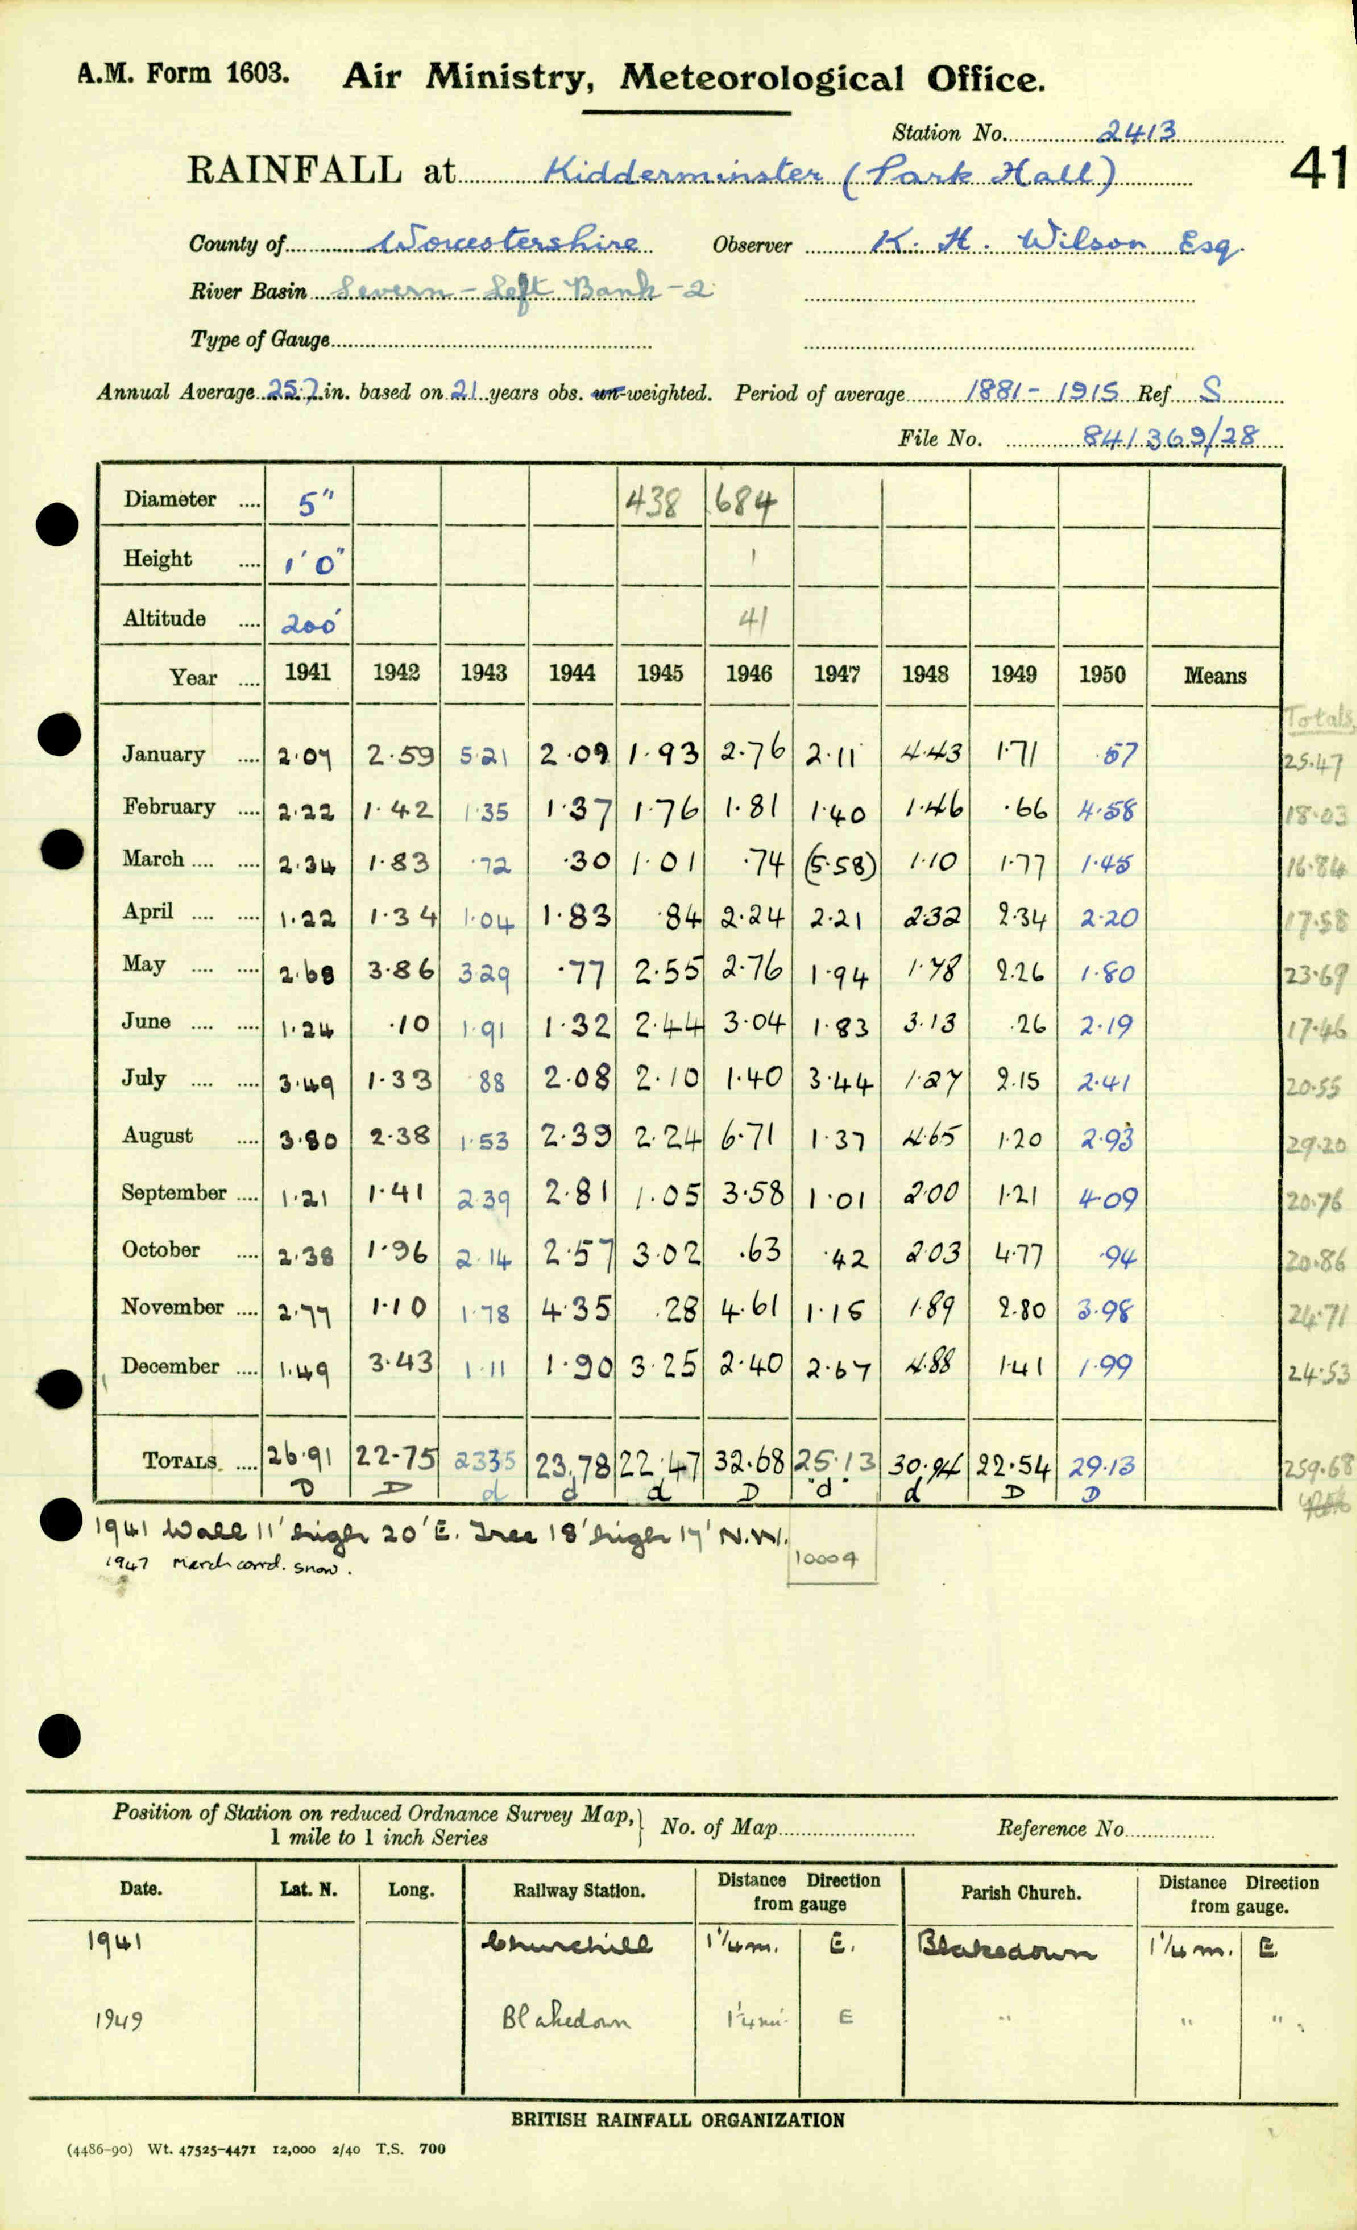 A.M. Form 1603. Air Ministry, Meteorological Office.
Station No. 2413
41
RAINFALL at Kidderminster (Park Hall)
County of Worcestershire Observer K. H. Wilson Esq.
River Basin Severn - Left Bank - 2
Type of Gauge
Annual Average 25.7 in. based on 21 years obs. un-weighted. Period of average 1881 - 1915 Ref S
File No. 841369/28
Diameter .... 5" 438 684
Height .... 1' 0" 1
Altitude .... 200' 41
Year .... 1941 1942 1943 1944 1945 1946 1947 1948 1949 1950 Means
Totals
January .... 2.07 2.59 5.21 2.09 1.93 2.76 2.11 4.43 1.71 .57 25.47
February .... 2.22 1.42 1.35 1.37 1.76 1.81 1.40 1.46 .66 4.58 18.03
March .... .... 2.34 1.83 .72 .30 1.01 .74 (5.58) 1.10 1.77 1.45 16.84
April .... .... 1.22 1.34 1.04 1.83 .84 2.24 2.21 2.32 2.34 2.20 17.58
May .... .... 2.68 3.86 3.29 .77 2.55 2.76 1.94 1.78 2.26 1.80 23.69
June .... .... 1.24 .10 1.91 1.32 2.44 3.04 1.83 3.13 .26 2.19 17.46
July .... .... 3.49 1.33 .88 2.08 2.10 1.40 3.44 1.27 2.15 2.41 20.55
August .... 3.80 2.38 1.53 2.39 2.24 6.71 1.37 4.65 1.20 2.93 29.20
September .... 1.21 1.41 2.39 2.81 1.05 3.58 1.01 2.00 1.21 4.09 20.76
October .... 2.38 1.96 2.14 2.57 3.02 .63 .42 2.03 4.77 .94 20.86
November .... 2.77 1.10 1.78 4.35 .28 4.61 1.15 1.89 2.80 3.98 24.71
December .... 1.49 3.43 1.11 1.90 3.25 2.40 2.67 4.88 1.41 1.99 24.53
TOTALS .... 26.91 22.75 23.35 23.78 22.47 32.68 25.13 30.94 22.54 29.13 259.68
D D d d d D d d D D
1941 Wall 11' high 20' E. Tree 18' high 17' N.W.
1947 March corrd. snow.
10009
Position of Station on reduced Ordnance Survey Map, 1 mile to 1 inch Series } No. of Map Reference No.
Date. Lat. N. Long. Railway Station. Distance Direction from gauge Parish Church. Distance Direction from gauge.
1941 Churchill 1 1/4 m. E. Blakedown 1 1/4 m. E
1949 Blakedown 1 1/4 mi. E " " "
BRITISH RAINFALL ORGANIZATION
(4486-90) Wt. 47525-4471 12,000 2/40 T.S. 700